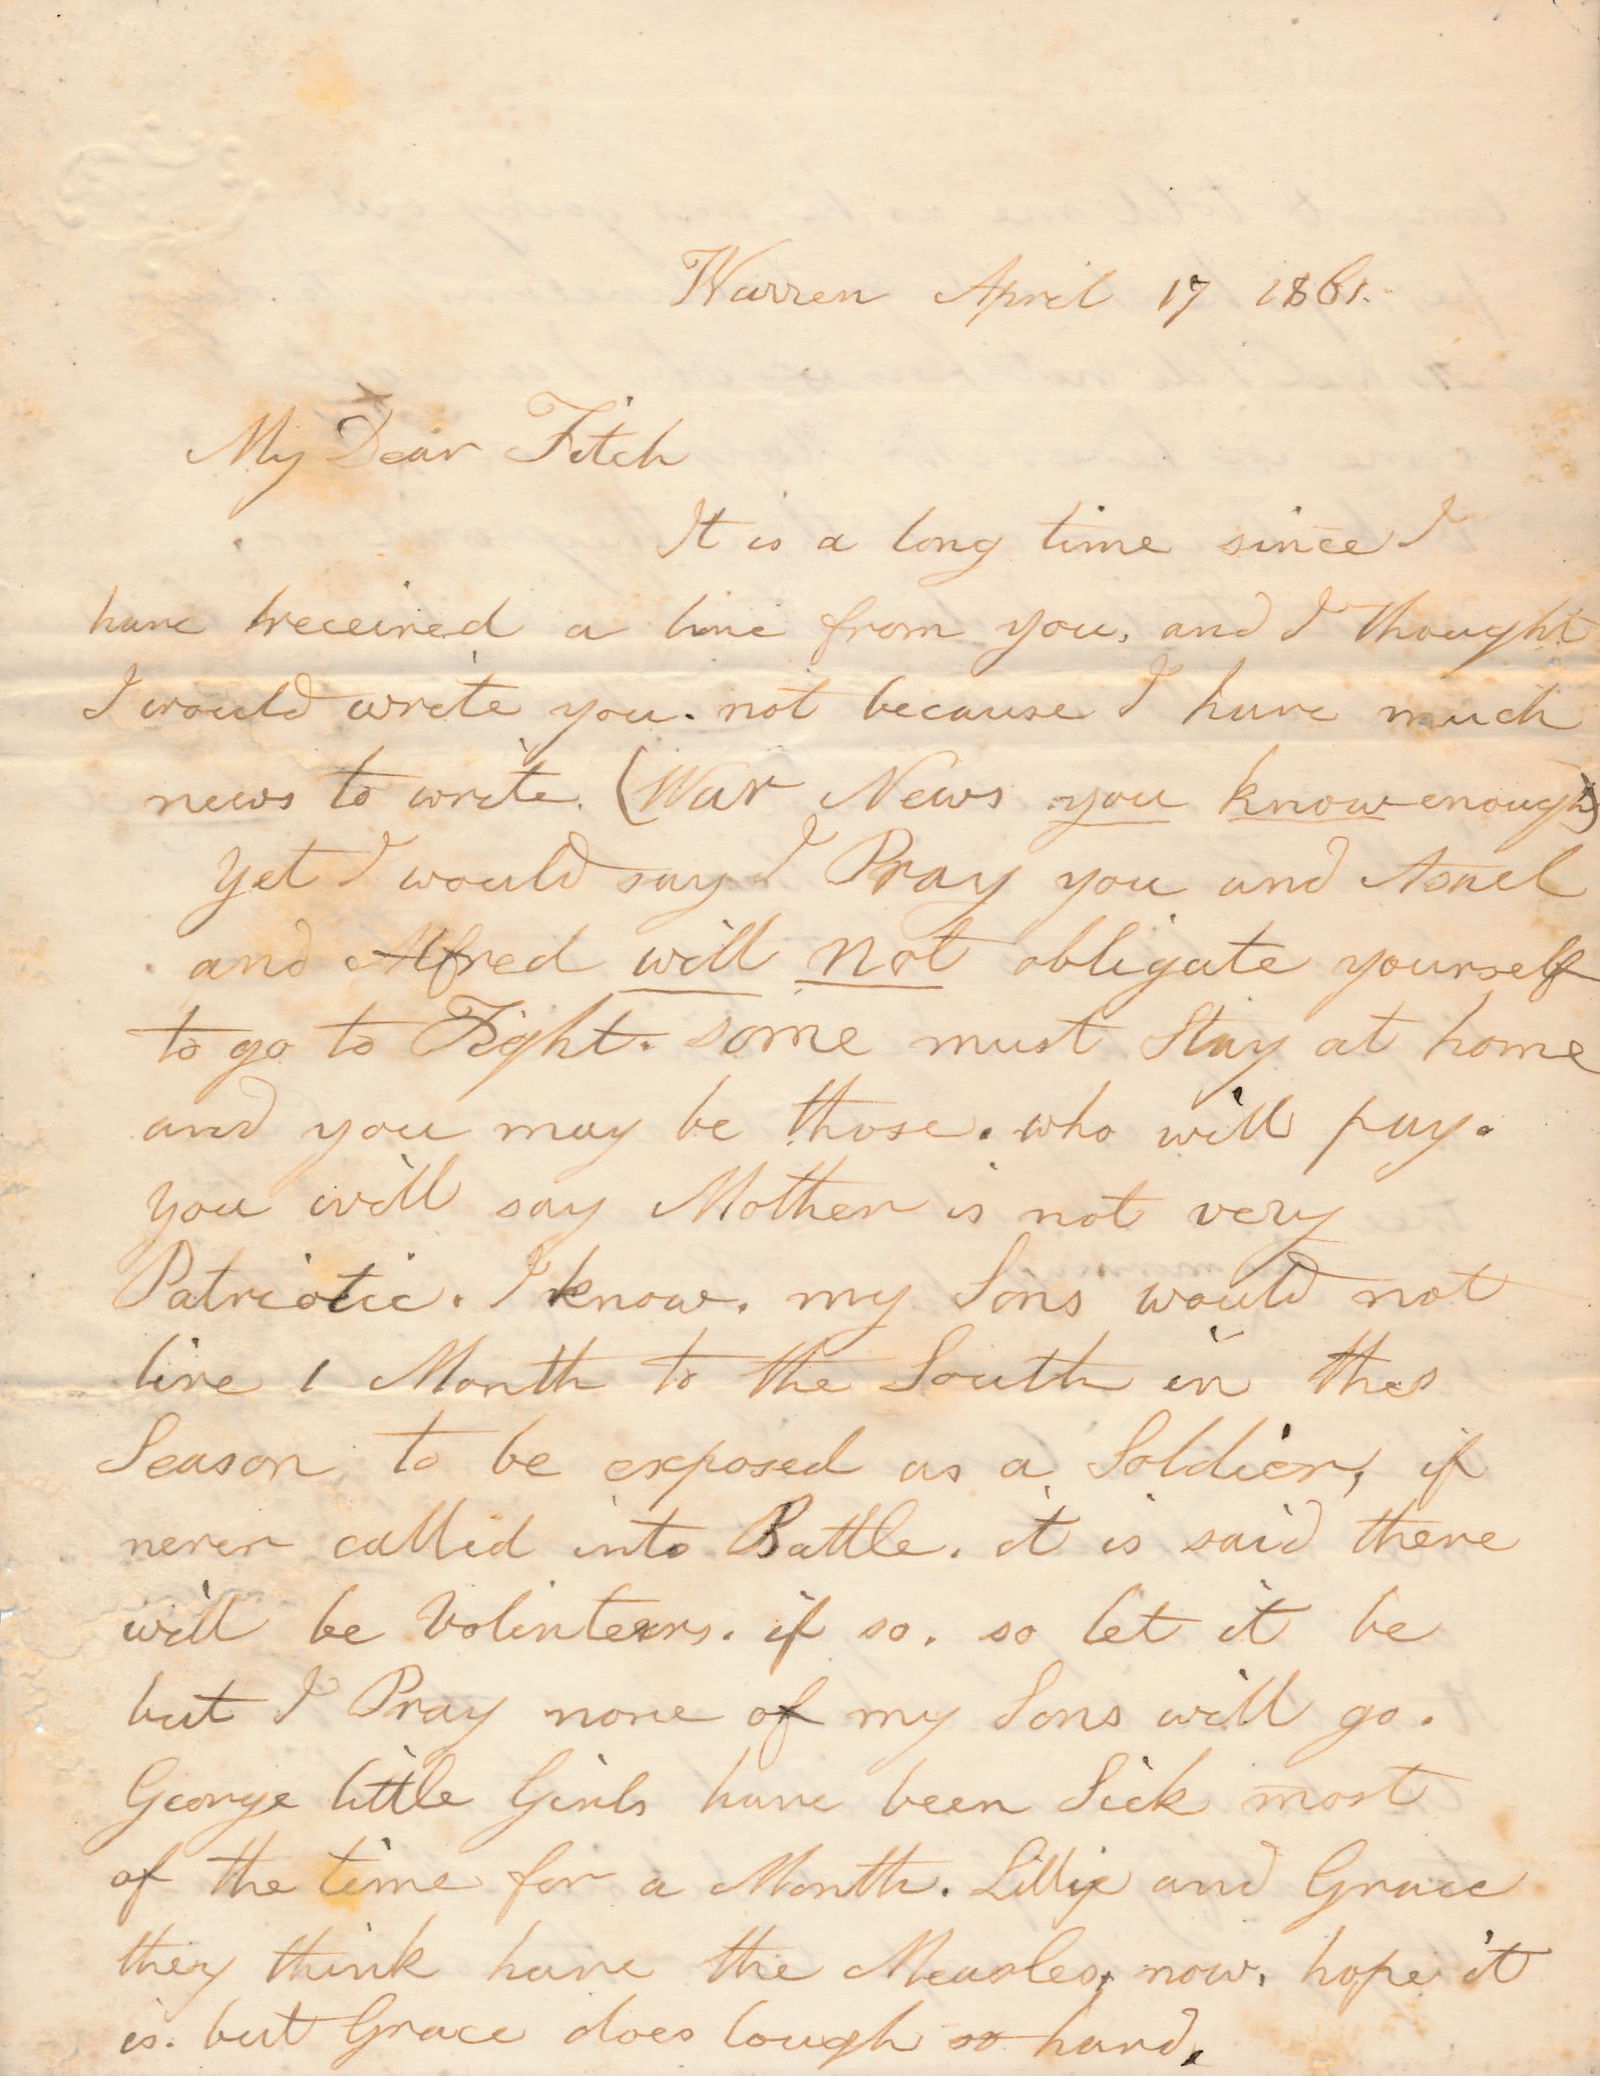 Warren April 17 1861.
My Dear Fitch
It is a long time since I
have received a line from you, and I thought
I would write you. not because I have much
news to write. (War News you know enough)
yet I would say I Pray you and Asael
and Alfred will not obligate yourself
to go to Fight. some must Stay at home
and you may be those. who will pay.
you will say Mother is not very
Patriotic. I know. my Sons would not
live 1 Month to the South in this
Season to be exposed as a Soldier, if
never called into Battle. it is said there
will be Volinteers. if so. so let it be
but I Pray none of my Sons will go.
George little Girls have been Sick most
of the time for a Month. Lillie and Grace
they think have the Measles, now, hope it
is. but Grace does Cough so hard,